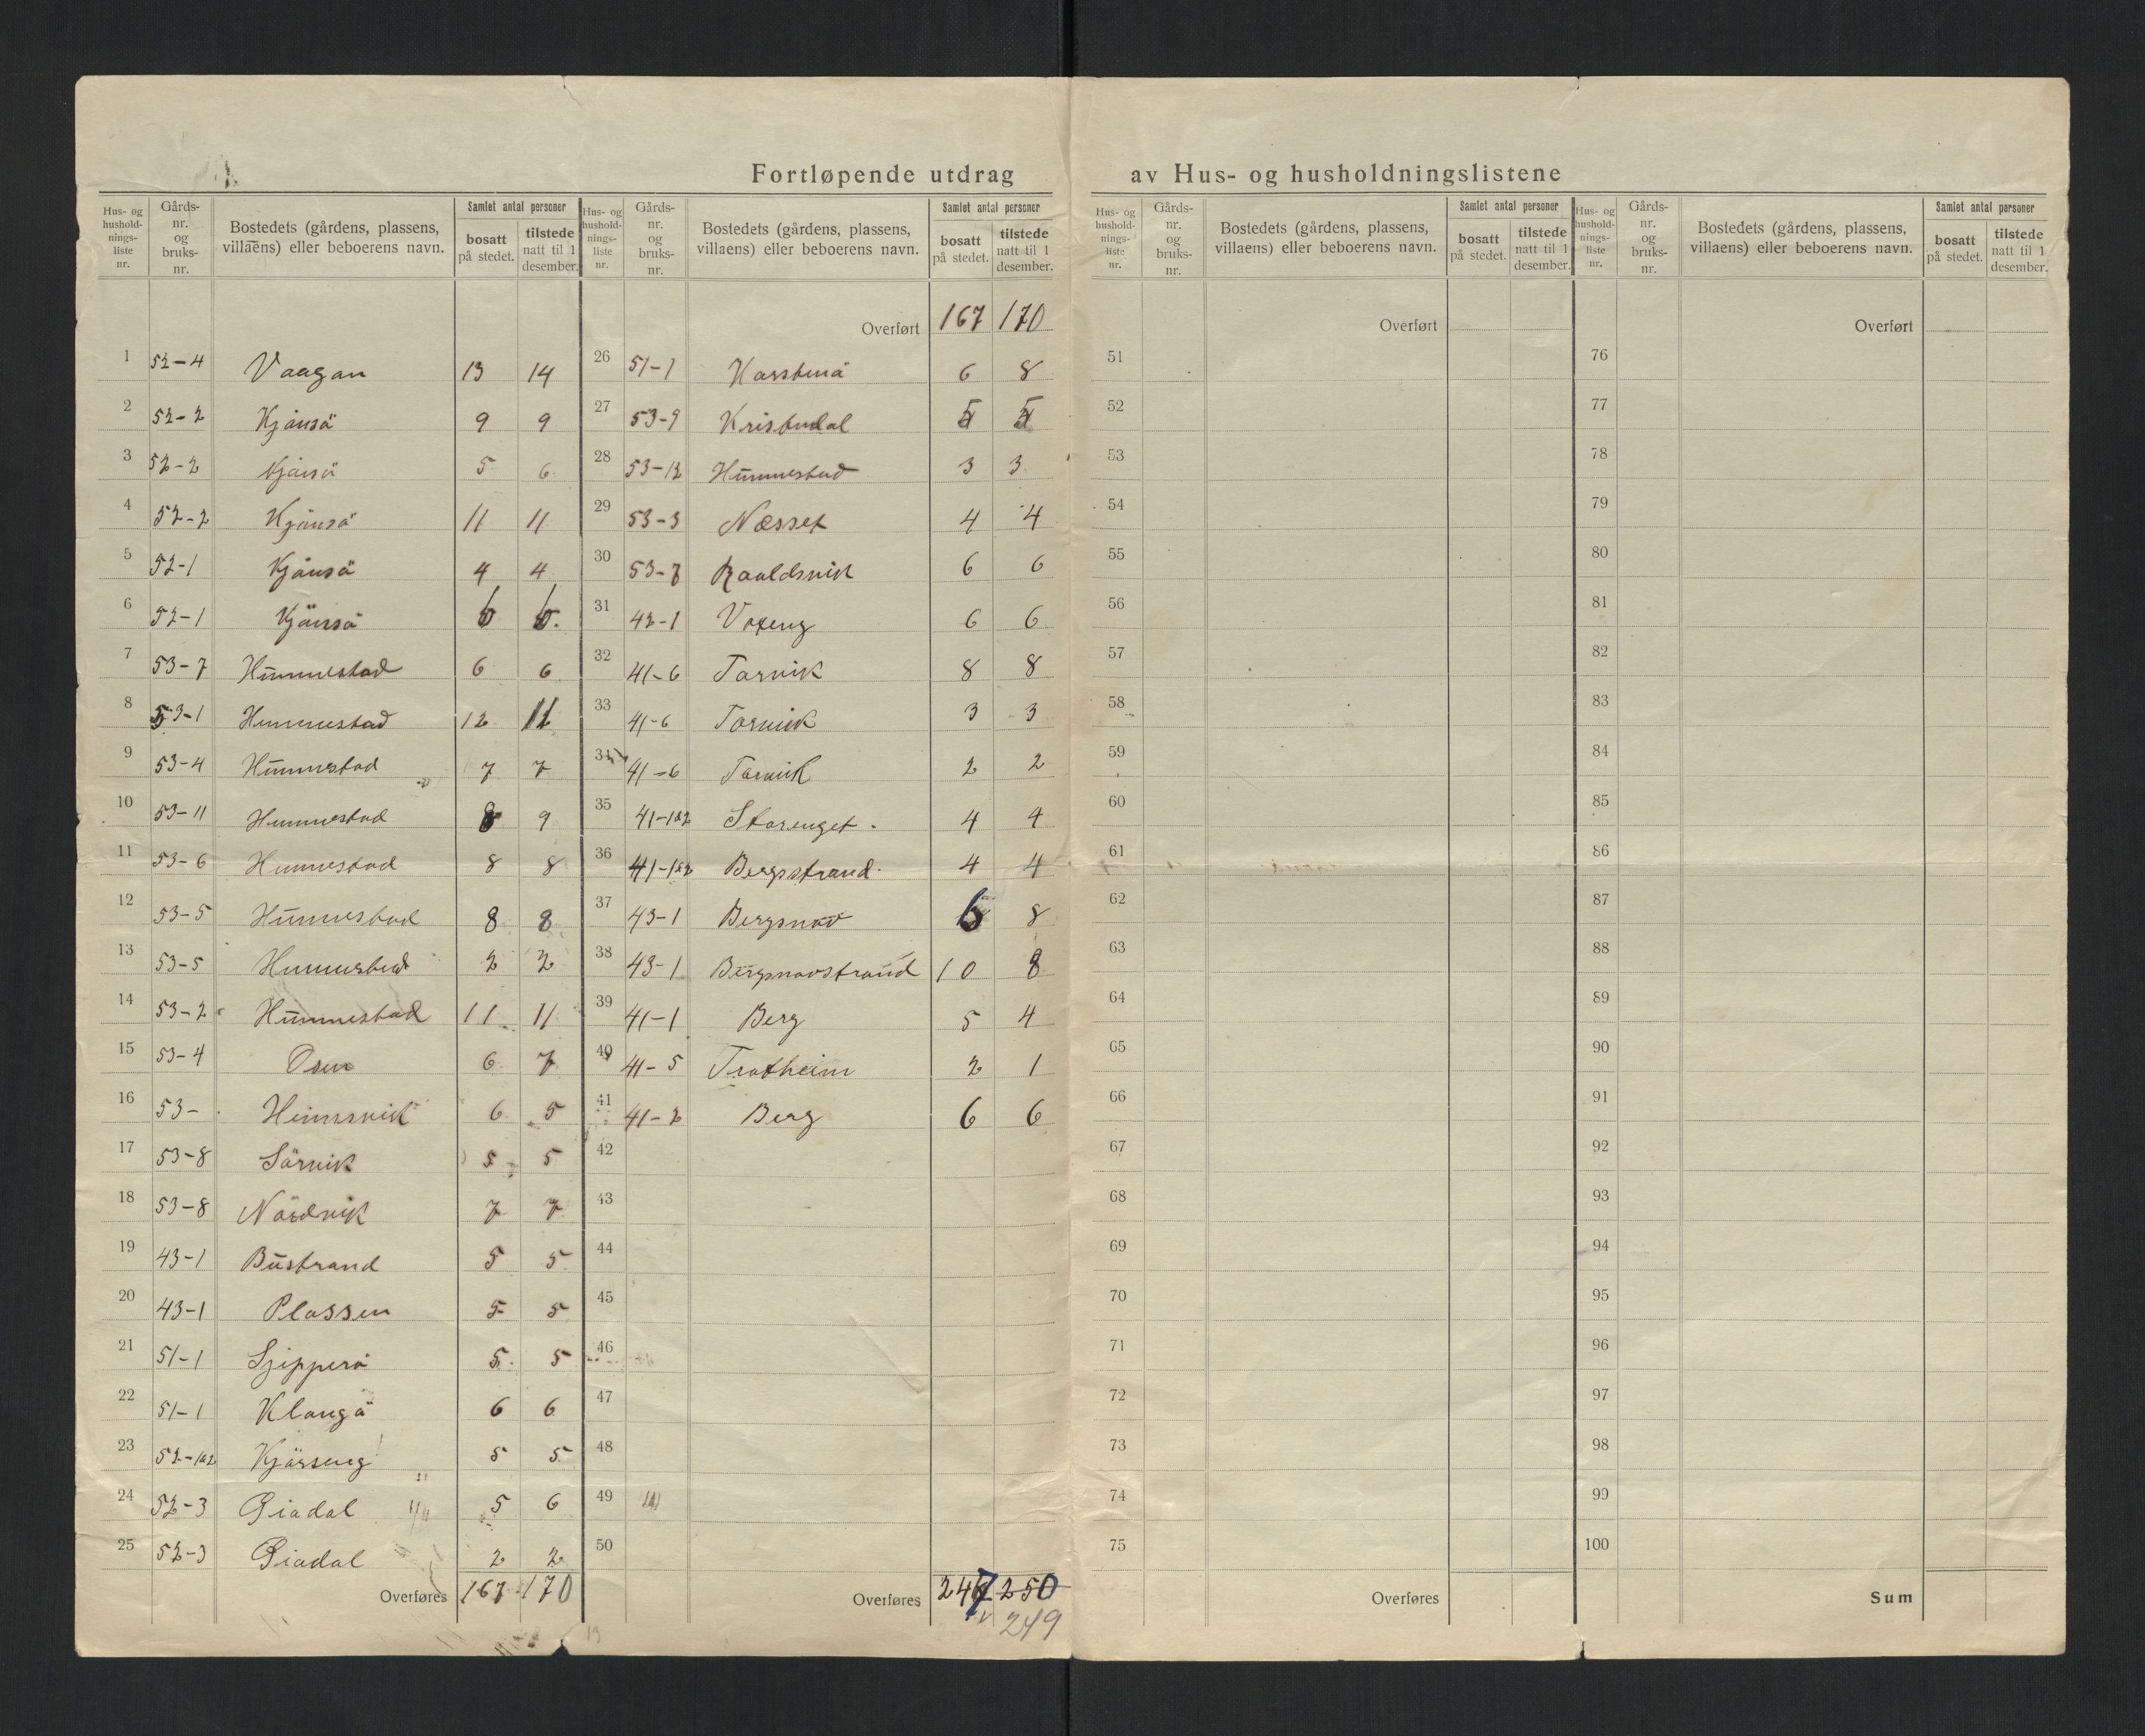 Fortløpende utdrag av Hus- og husholdningslistene
Hus- og hushold-nings-liste nr. Gårds-nr. og bruks-nr. Bostedets (gårdens, plassens, villaens) eller beboerens navn. Samlet antal personer bosatt på stedet. tilstede natt til 1 desember.
1 52-4 Vaagan 13 14
2 52-2 Kjånså 9 9
3 52-2 Kjånså 5 6
4 52-2 Kjånså 11 11
5 52-1 Kjånså 4 4
6 52-1 Kjånså 6 6
7 53-7 Hümmestad 6 6
8 53-1 Hummestad 12
9 53-4 Hümmestad 7 7
10 53-11 Hummestad 8 9
11 53-6 Hummestad 8 8
12 53-5 Hümmestad 8 8
13 53-5 Hummestad 2 2
14 53-2 Hümmestad 11 11
15 53-4 Osen 6 7
16 53- 6 5
17 53-8 Sörvik 5 5
18 53-8 Nordvik 7 7
19 43-1 Büstrand 5 5
20 43-1 Plassen 5 5
21 51-1 5 5
22 51-1 Klangå 6 6
23 52-1&2 5 5
24 52-3 5 6
25 52-3 2 2
Overføres 167 170
Hus- og hushold-nings-liste nr. Gårds-nr. og bruks-nr. Bostedets (gårdens, plassens, villaens) eller beboerens navn. Samlet antal personer bosatt på stedet. tilstede natt til 1 desember.
Overført 167 170
26 51-1 6 8
27 53-9 5 5
28 53-12 Hümmestad 3 3
29 53-3 Næsset 4 4
30 53-7 6 6
31 42-1 Voxeng 6 6
32 41-6 Torvik 8 8
33 41-6 Torvik 3 3
34 41-6 Torvik 2 2
35 41-1&2 Storenget 4 4
36 41-1&2 Bergsstrand 4 4
37 43-1 Bergsnov 6 8
38 43-1 Bergsnovstrand 10 8
39 41-1 Berg 5 4
40 41-5 Trotheim 2 1
41 41-2 Berg 6 6
42
43
44
45
46
47
48
49
50
Overføres 247 250
249
Hus- og hushold-nings-liste nr. Gårds-nr. og bruks-nr. Bostedets (gårdens, plassens, villaens) eller beboerens navn. Samlet antal personer bosatt på stedet. tilstede natt til 1 desember.
Overført
51
52
53
54
55
56
57
58
59
60
61
62
63
64
65
66
67
68
69
70
71
72
73
74
75
Overføres
Hus- og hushold-nings-liste nr. Gårds-nr. og bruks-nr. Bostedets (gårdens, plassens, villaens) eller beboerens navn. Samlet antal personer bosatt på stedet. tilstede natt til 1 desember.
Overført
76
77
78
79
80
81
82
83
84
85
86
87
88
89
90
91
92
93
94
95
96
97
98
99
100
Sum